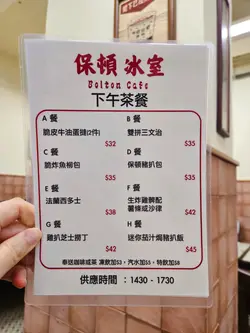 保頓冰室
Bolton Cafe
下午茶餐
A 餐
脆皮牛油蛋撻(2件)
$32
B 餐
雙拼三文治
$35
C 餐
脆炸魚柳包
$35
D 餐
保頓豬扒包
$35
E 餐
法蘭西多士
$38
F 餐
生炸雞髀配
薯條或沙律
$42
G 餐
雞扒芝士撈丁
$42
H 餐
迷你茄汁焗豬扒飯
$45
奉送咖啡或茶 凍飲加$3、汽水加$5、特飲加$8
供應時間：1430 - 1730